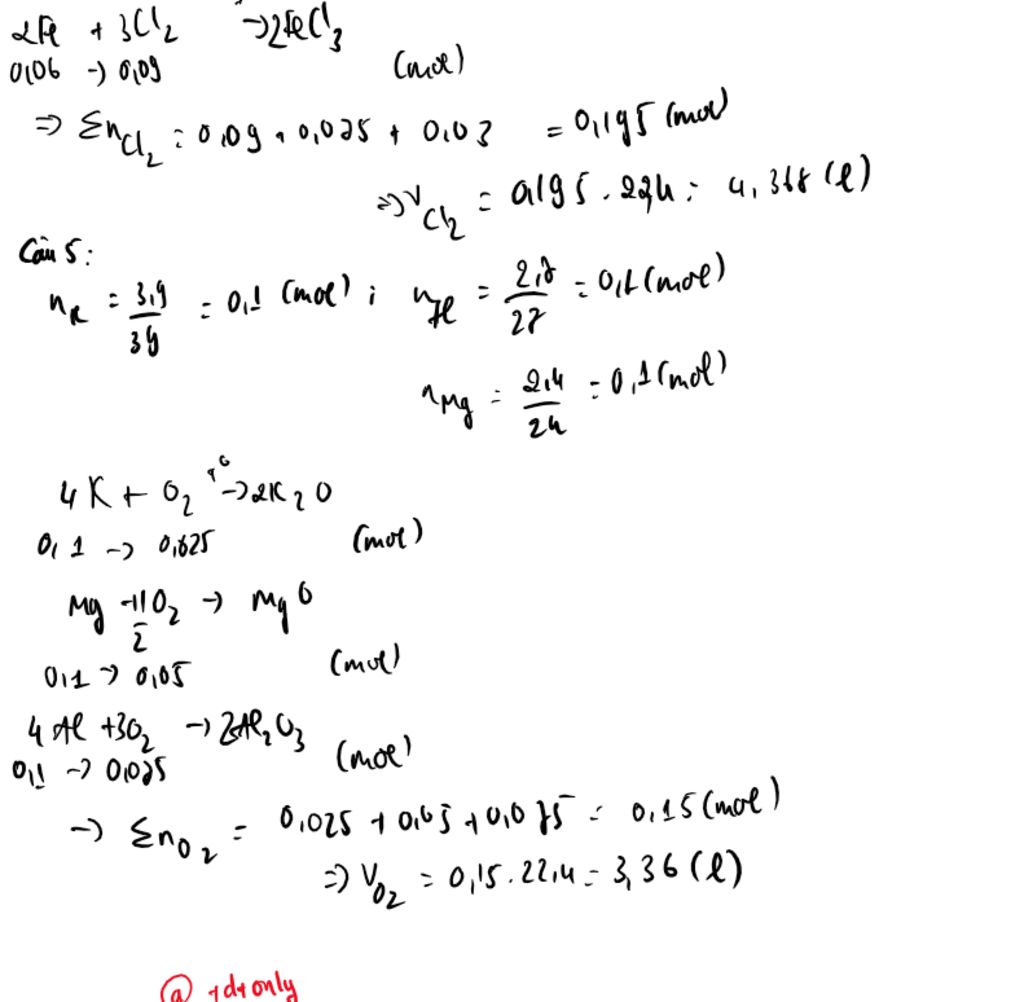 2Fe + 3Cl₂ → 2FeCl₃
0,06 → 0,09 (mol)
⇒ Σn_Cl₂ = 0,09 + 0,075 + 0,03 = 0,195 (mol)
⇒ V_Cl₂ = 0,195 . 22,4 = 4,368 (l)
Câu 5:
n_K = 3,9/39 = 0,1 (mol) ; n_Al = 2,7/27 = 0,1 (mol)
n_Mg = 2,4/24 = 0,1 (mol)
4K + O₂ →(t°) 2K₂O
0,1 → 0,025 (mol)
Mg + 1/2 O₂ → MgO
0,1 → 0,05 (mol)
4Al + 3O₂ → 2Al₂O₃
0,1 → 0,075 (mol)
→ Σn_O₂ = 0,025 + 0,05 + 0,075 = 0,15 (mol)
⇒ V_O₂ = 0,15 . 22,4 = 3,36 (l)
only